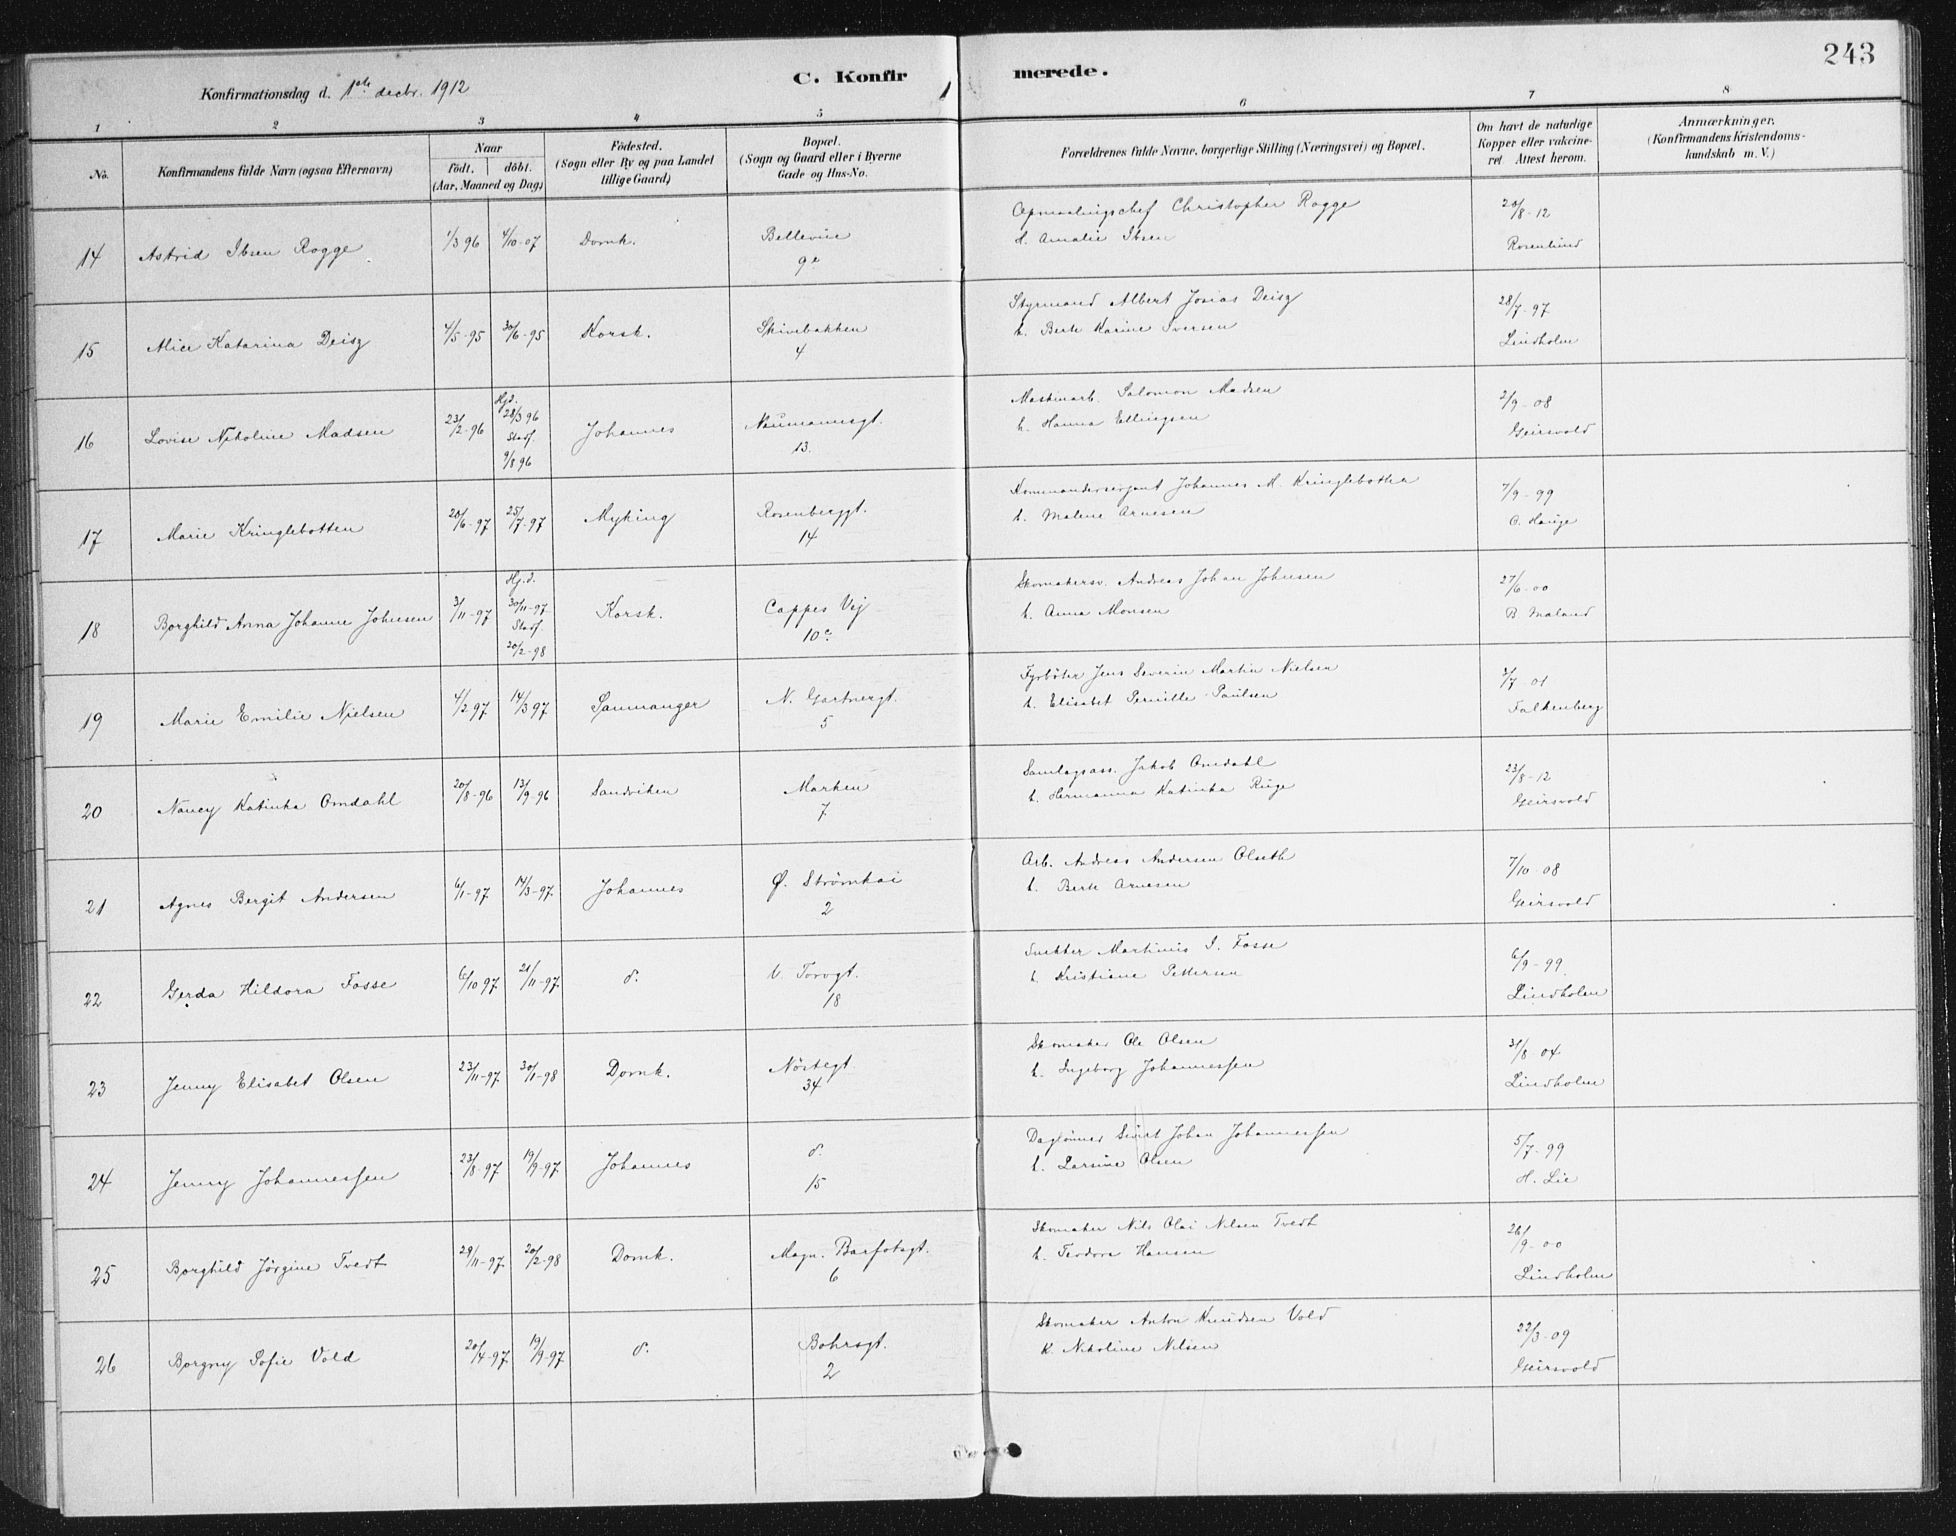 243
C. Konfirmerede.
Konfirmationsdag d. 1ste decbr. 1912
1 2 3 4 5 6 7 8
No. Konfirmandens fulde Navn (ogsaa Efternavn) Naar födt. döbt. (Aar, Maaned og Dag) Födested. (Sogn eller By og paa Landet tillige Gaard) Bopæl. (Sogn og Gaard eller i Byerne Gade og Hus-No. Forældrenes fulde Navne, borgerlige Stilling (Næringsvei) og Bopæl. Om havt de naturlige Kopper eller vakcineret Attest herom. Anmærkninger. (Konfirmandens Kristendomskundskab m. V.)
14 Astrid Ibsen Rogge 1/3 96 4/10-07 Domk. Bellevue 9a Opmaalingschef Christopher Rogge
H. Amalie Ibsen 20/8-12 Rosenlund
15 Alice Katarina Deisz 4/5-95 30/6-95 Korsk. Skivebakken 4 Styrmand Albert Josias Deisz
h. Berte Karine Iversen 28/7-97 Lindholm
16 Lovise Nikoline Madsen 23/2-96 Hjd. 28/3 96 Stadf. 9/8 96 Johannes Neumannsgt. 13. Maskinarb. Salomon Madsen
h. Hanna Ellingsen 2/9-08 Geirsvold
17 Marie Kringlebotten 20/6-97 25/7-97 Myking Rosenberggt. 14 Kommandersergent Johannes M. Kringlebotten
h. Malene Arnesen 7/9-99 O. Hauge
18 Borghild Anna Johanne Johnsen 3/11-97 Hj.d. 30/11-97 Stadf. 20/2-98 Korsk. Cappes Vej 10c. Skomakersv. Andreas Johan Johnsen
h. Anna Monsen 27/6-00 B Maland
19 Marie Emilie Nielsen 4/2 97 14/3 97 Sammanger N. Gartnergt. 5 Fyrböter Jens Severin Martin Nielsen
h. Elisabet Pernille Paulsen 3/7 01 Falkenberg
20 Nancy Katinka Omdahl 20/8-96 13/9-96 Sandviken Marken 7. Samlagsass. Jakob Omdahl
h. Hermanna Katinka Ruge 23/8-12 Geirsvold
21 Agnes Bergit Andersen 6/1-97 14/3-97. Johannes Ø. Strömkai 2 Arb. Andreas Andersen Olseth
h. Berte Arnesen 7/10 08 Geirsvold
22 Gerda Hildora Fosse 6/10 97 21/11-97. d. V. Torvgt. 18 Martinus I. Fosse
h. Kristiane Pettersen 6/9-99. Lindholm
23 Jenny Elisabet Olsen 23/11-97. 30/1-98 Domk. Nöstegt. 34 Skomaker Ole Olsen
h. Ingeborg Johannessen 31/8 04 Lindholm
24 Jenny Johannessen 23/8-97. 19/9-97. Johannes d. 15 Daglönner Sivert Johan Johannessen
h. Larsine Olsen 5/7-99 H. Lie
25 Borghild Jörgine Tvedt 29/11-97. 20/2-98 Domk. Magn. Barfotsgt. 6 Skomaker Nils Olai Nilsen Tvedt
h. Teodora Hansen 26/9-00 Lindholm
26 Borgny Sofie Vold 20/4-97. 19/9-97 d. Bohrsgt. 2 Skomaker Anton Knudsen Vold
h. Nikoline Nilsen 22/3-09 Geirsvold